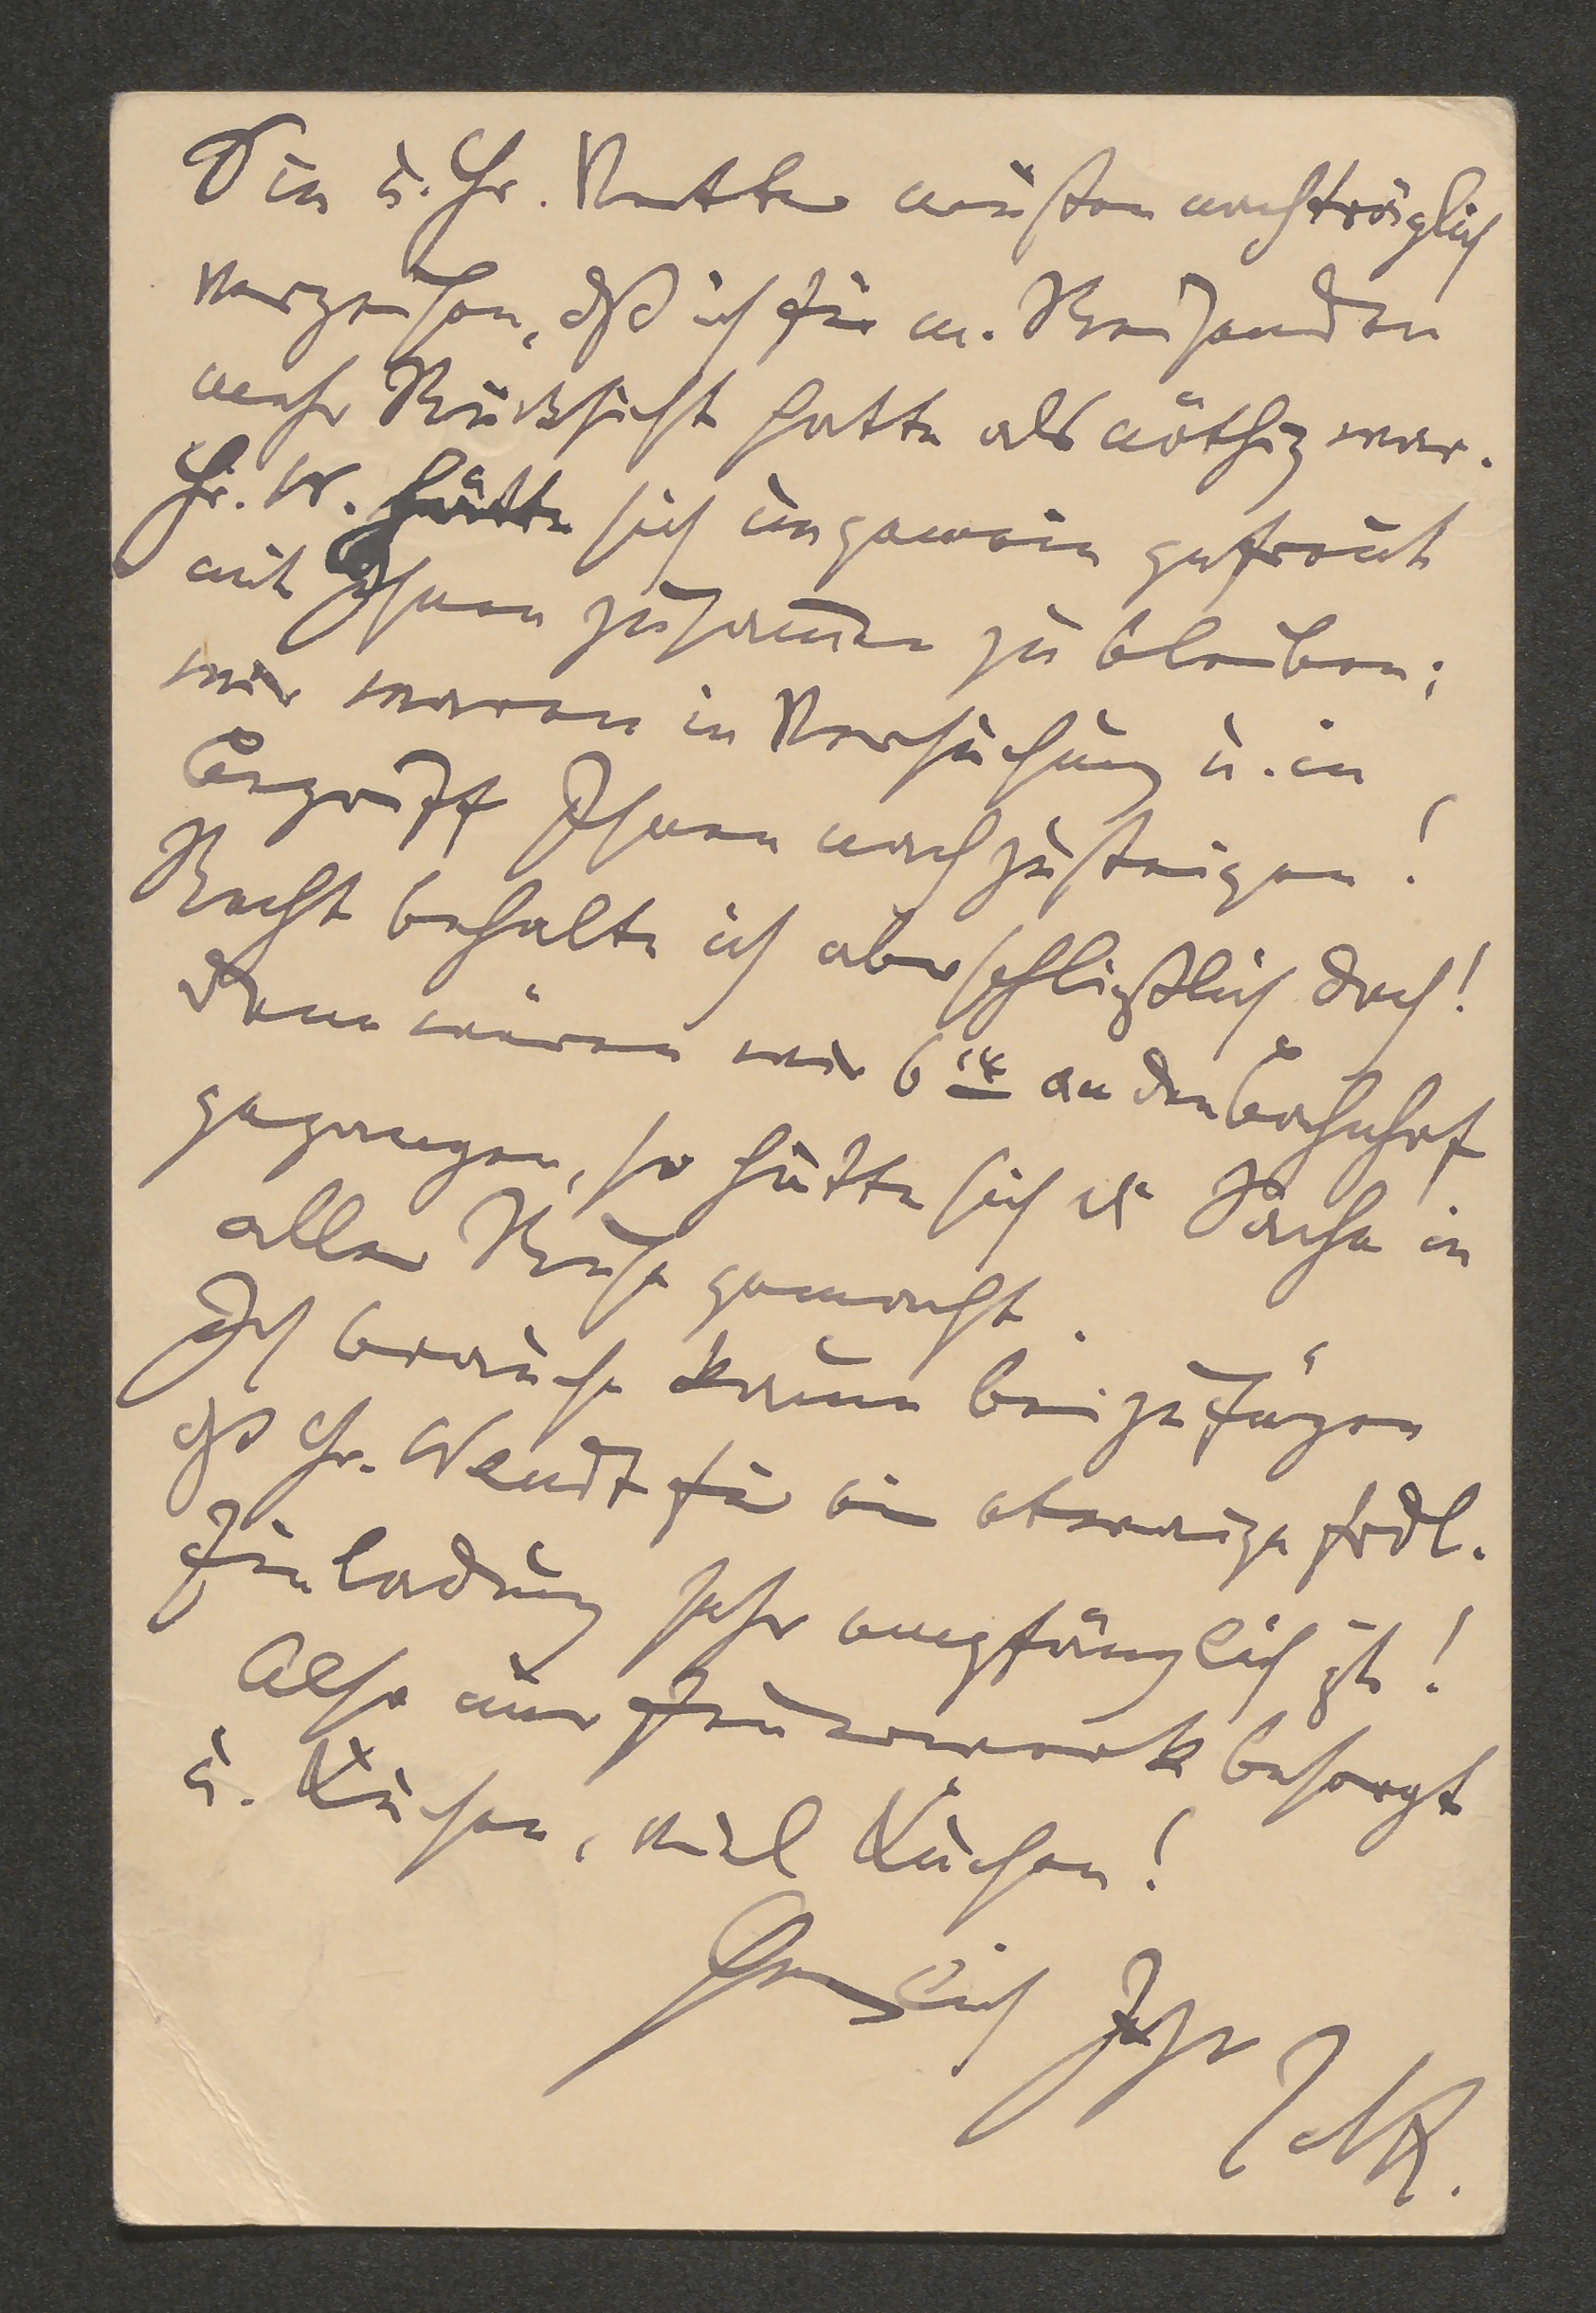 Sie u. Hr. Vetter müßen nachträglich
verzeihen, dß ich für m. Reisenden
mehr Rücksicht hatte als nöthig war.
Hr. W. hätte sich ungemein gefreut
mit Ihnen zusammen zu bleiben;
wir waren in Versuchung u. im
Begriff Ihnen nachzusteigen!
Recht behalte ich aber schließlich doch!
Denn wären wir 6 an den Bahnhof
gegangen, so hätte sich die Sache in
aller Ruhe gemacht.
Ich brauche kaum beizufügen
dß Hr. Wendt für ein etwaige frdl.
Einladung sehr empfänglich ist!
Also nur Feuerwerk besorgt
u. Kuchen, viel Kuchen!
Herzlich Ihr